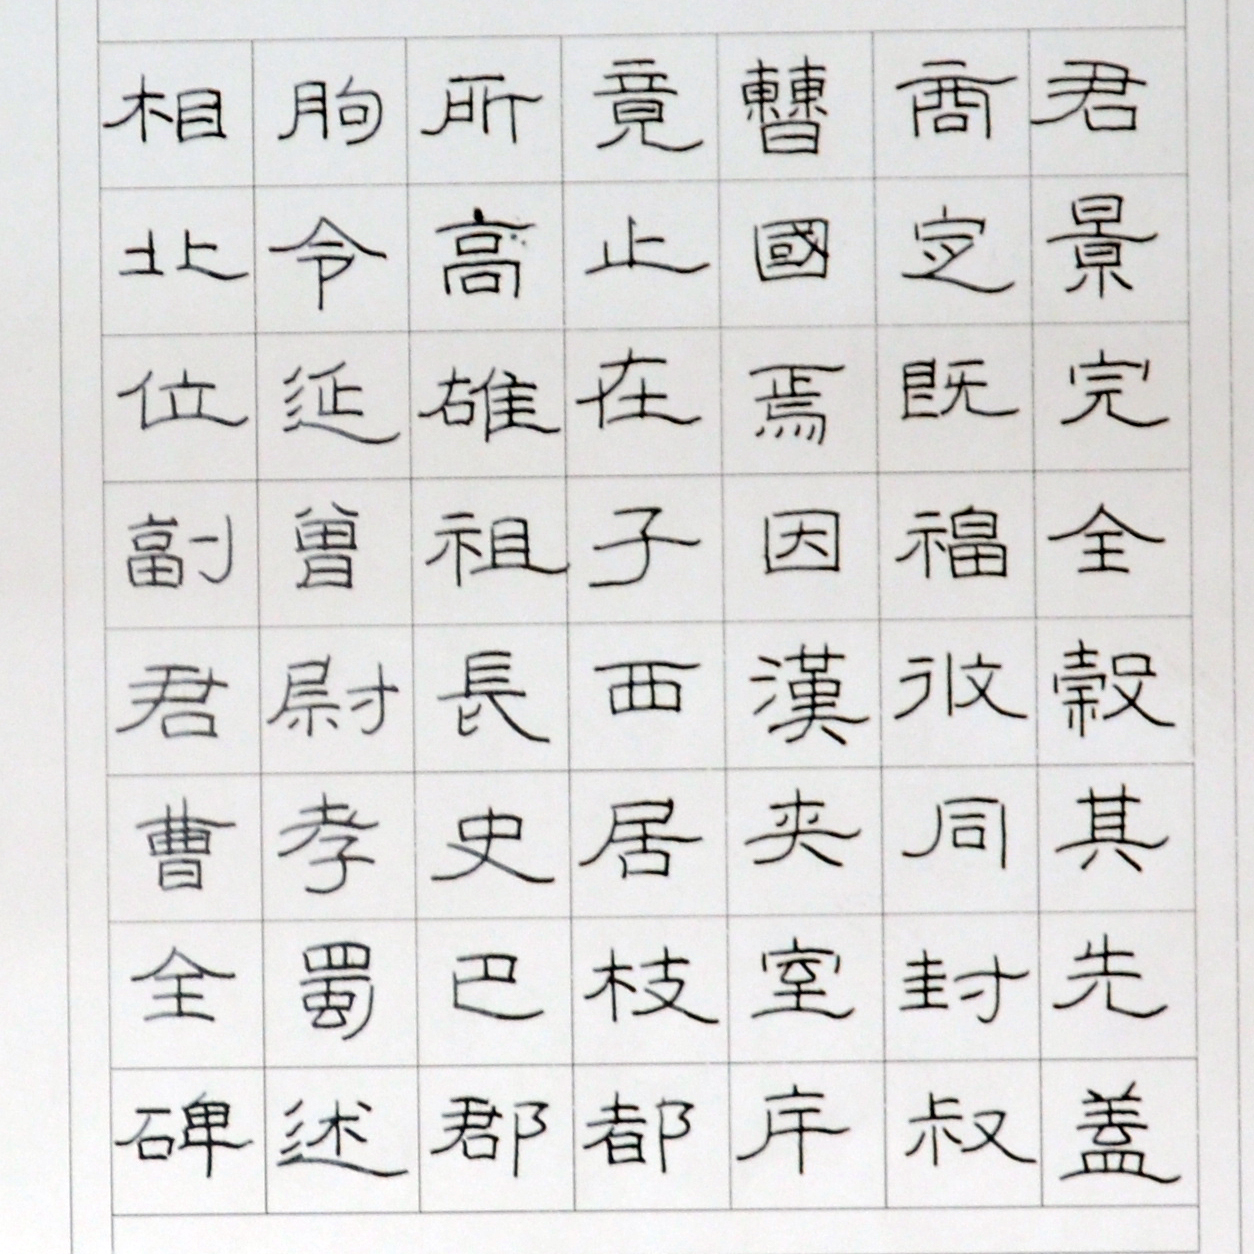 君景完全穀其先蓋
商定既福攸同封叔
轉國焉因漢夾室庁
竟止在子西居枝都
所高雄祖長史巴郡
朐令延曾尉孝蜀述
相北位副君曹全碑